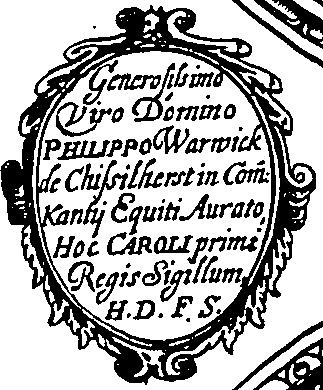 Generosissimo
Viro Domino
PHILIPPO Warwick
de Chissilherst in Com̃:
Kantij Equiti Aurato,
Hoc CAROLI primi
Regis Sigillum,
H. D. F. S.